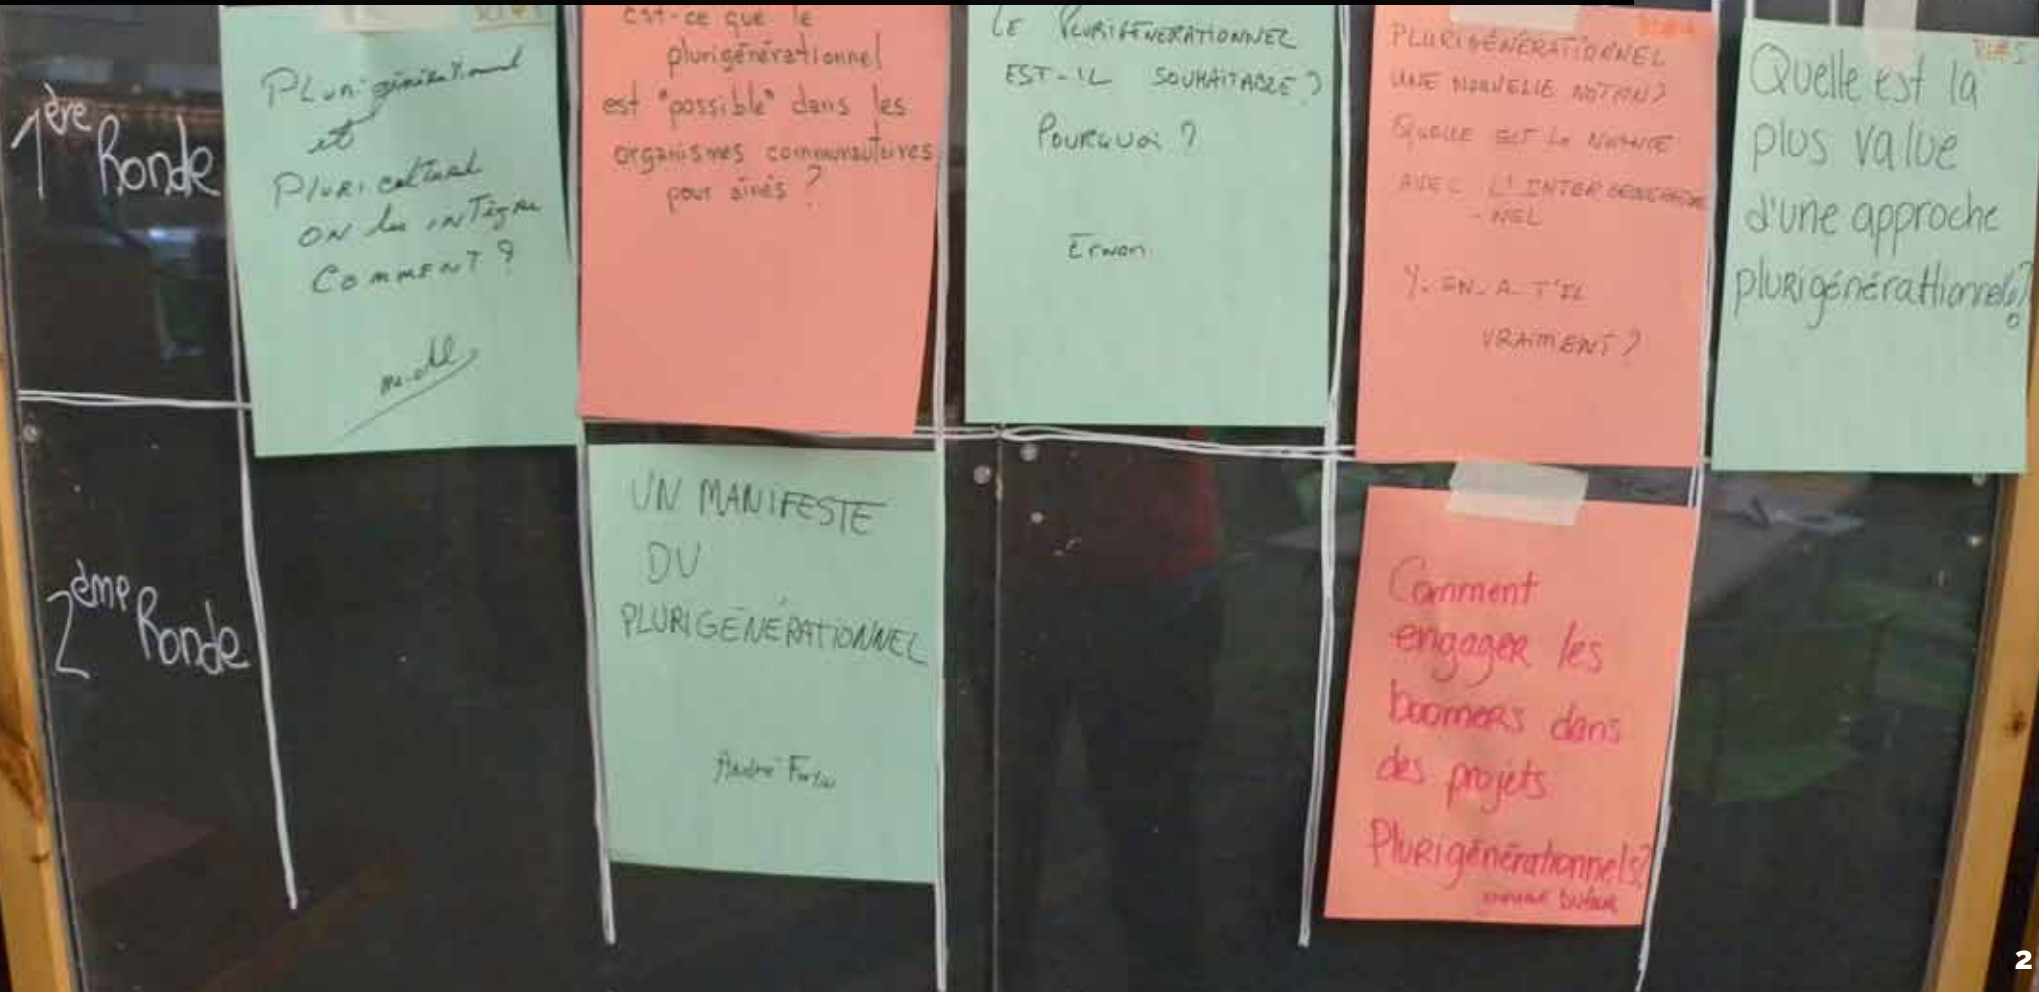 1ère Ronde
Plurigénérationnel
et
Pluriculturel
ON les intègre
COMMENT ?
Est-ce que le
plurigénérationnel
est "possible" dans les
organismes communautaires
pour aînés ?
LE PLURIGÉNÉRATIONNEL
EST-IL SOUHAITABLE ?
POURQUOI ?
Erwan
PLURIGÉNÉRATIONNEL
UNE NOUVELLE NOTION ?
QUELLE EST LA NUANCE
AVEC L'INTERGÉNÉRATION
-NEL
Y-EN-A-T'IL
VRAIMENT ?
Quelle est la
plus value
d'une approche
plurigénérattionnels?
2ème Ronde
UN MANIFESTE
DU
PLURIGÉNÉRATIONNEL
André Fortin
Comment
engager les
boomers dans
des projets
Plurigénérationnels?
DUFOUR
2